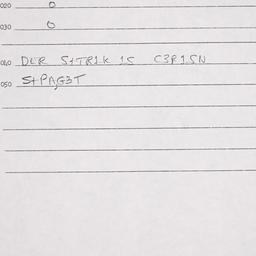 020 0
030 0
040 DER S+TR1K 1S C3R1SN
050 S+PAG3T